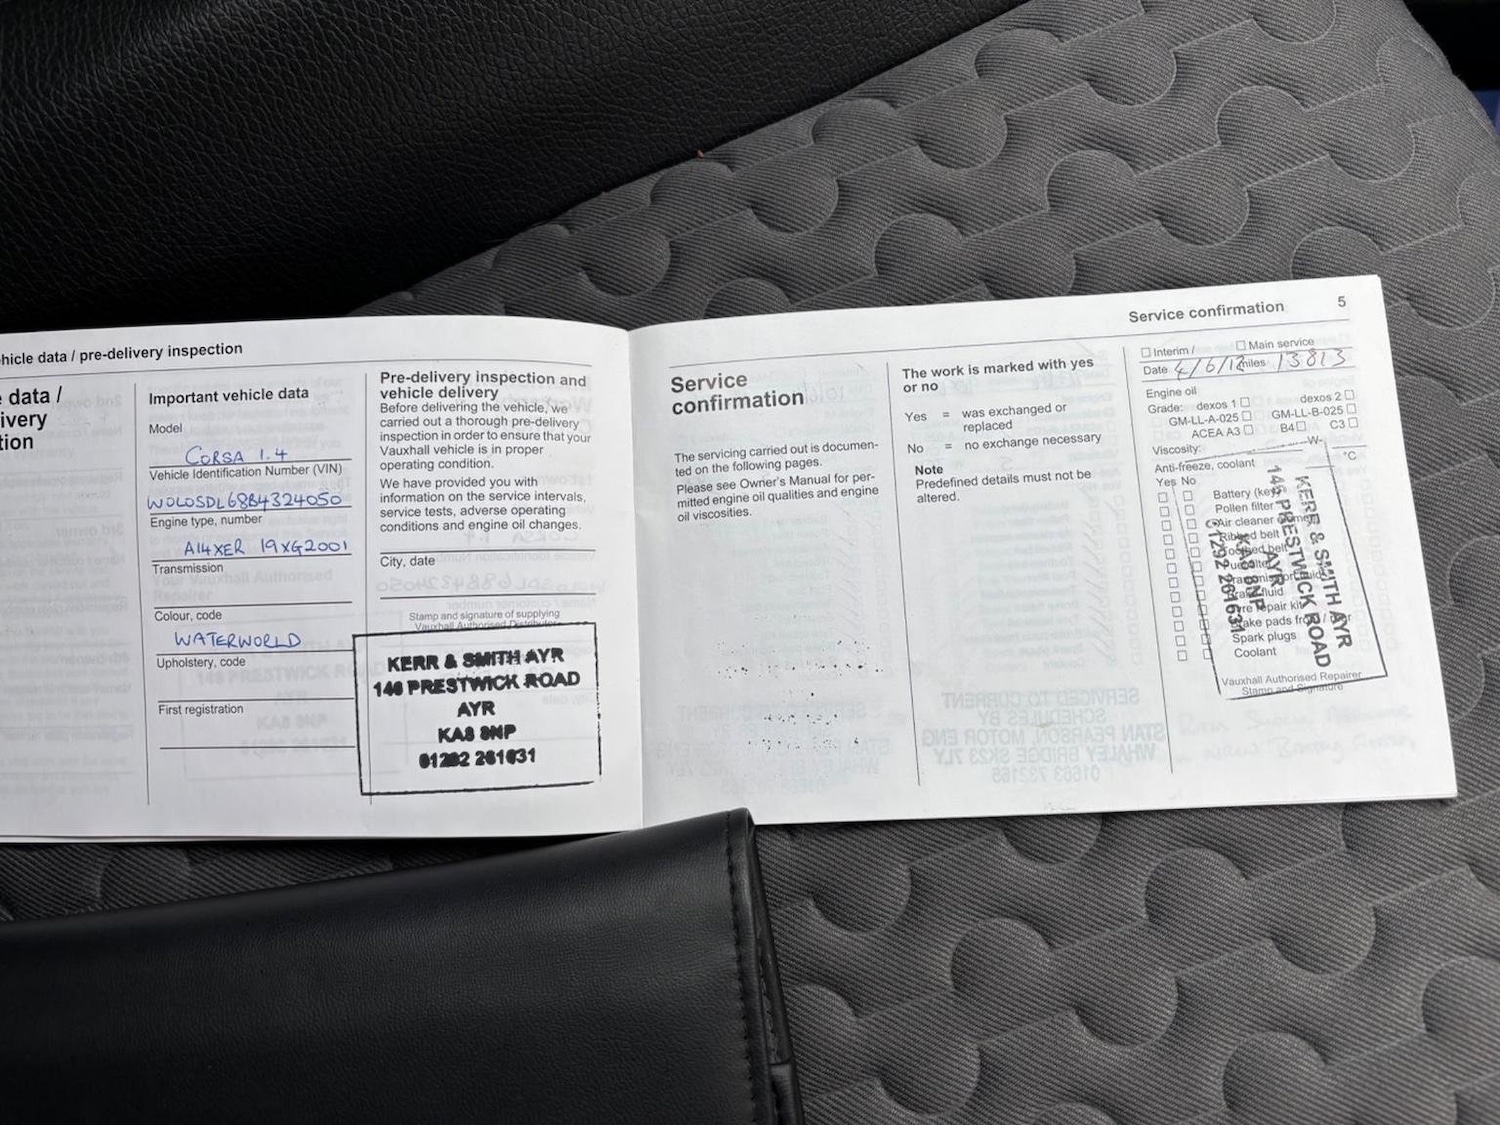 hicle data / pre-delivery inspection
data /
ivery
tion
Important vehicle data
Model
CORSA 1.4
Vehicle Identification Number (VIN)
W0L0SDL68B4324050
Engine type, number
A14XER 19XG2001
Transmission
Colour, code
WATERWORLD
Upholstery, code
First registration
Pre-delivery inspection and
vehicle delivery
Before delivering the vehicle, we
carried out a thorough pre-delivery
inspection in order to ensure that your
Vauxhall vehicle is in proper
operating condition.
We have provided you with
information on the service intervals,
service tests, adverse operating
conditions and engine oil changes.
City, date
Stamp and signature of supplying
Vauxhall Authorised Distributor
KERR & SMITH AYR
146 PRESTWICK ROAD
AYR
KA8 8NP
01292 261631
Service confirmation 5
Service
confirmation
The servicing carried out is documen-
ted on the following pages.
Please see Owner's Manual for per-
mitted engine oil qualities and engine
oil viscosities.
The work is marked with yes
or no
Yes = was exchanged or
replaced
No = no exchange necessary
Note
Predefined details must not be
altered.
Interim / Main service
Date 4/6/12 miles 13813
Engine oil
Grade: dexos 1 dexos 2
GM-LL-A-025 GM-LL-B-025
ACEA A3 B4 C3
Viscosity: W-
Anti-freeze, coolant °C
Yes No
Battery (key)
Pollen filter
Air cleaner
Ribbed belt
Toothed belt
fluid
Tyre repair kit
Brake pads
Spark plugs
Coolant
Vauxhall Authorised Repairer
Stamp and Signature
KERR & SMITH AYR
146 PRESTWICK ROAD
AYR
KA8 8NP
01292 261631